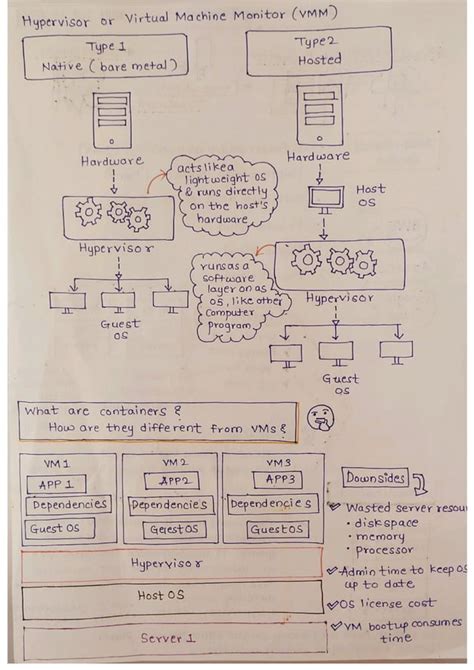 Hypervisor or Virtual Machine Monitor (VMM)
Type 1
Native (bare metal)
Type2
Hosted
Hardware
Hardware
acts like a
lightweight OS
& runs directly
on the host's
hardware
Host
OS
Hypervisor
runs as a
software
layer on as
OS, like other
Computer
program
Hypervisor
Guest
OS
Guest
OS
What are containers ?
How are they different from VMs ?
VM 1
APP 1
Dependencies
Guest OS
VM 2
APP2
Dependencies
Guest OS
VM 3
APP3
Dependencies
Guest OS
Hypervisor
Host OS
Server 1
Downsides
Wasted server resour
• disk space
• memory
• processor
Admin time to keep OS
up to date
OS license cost
VM bootup consumes
time